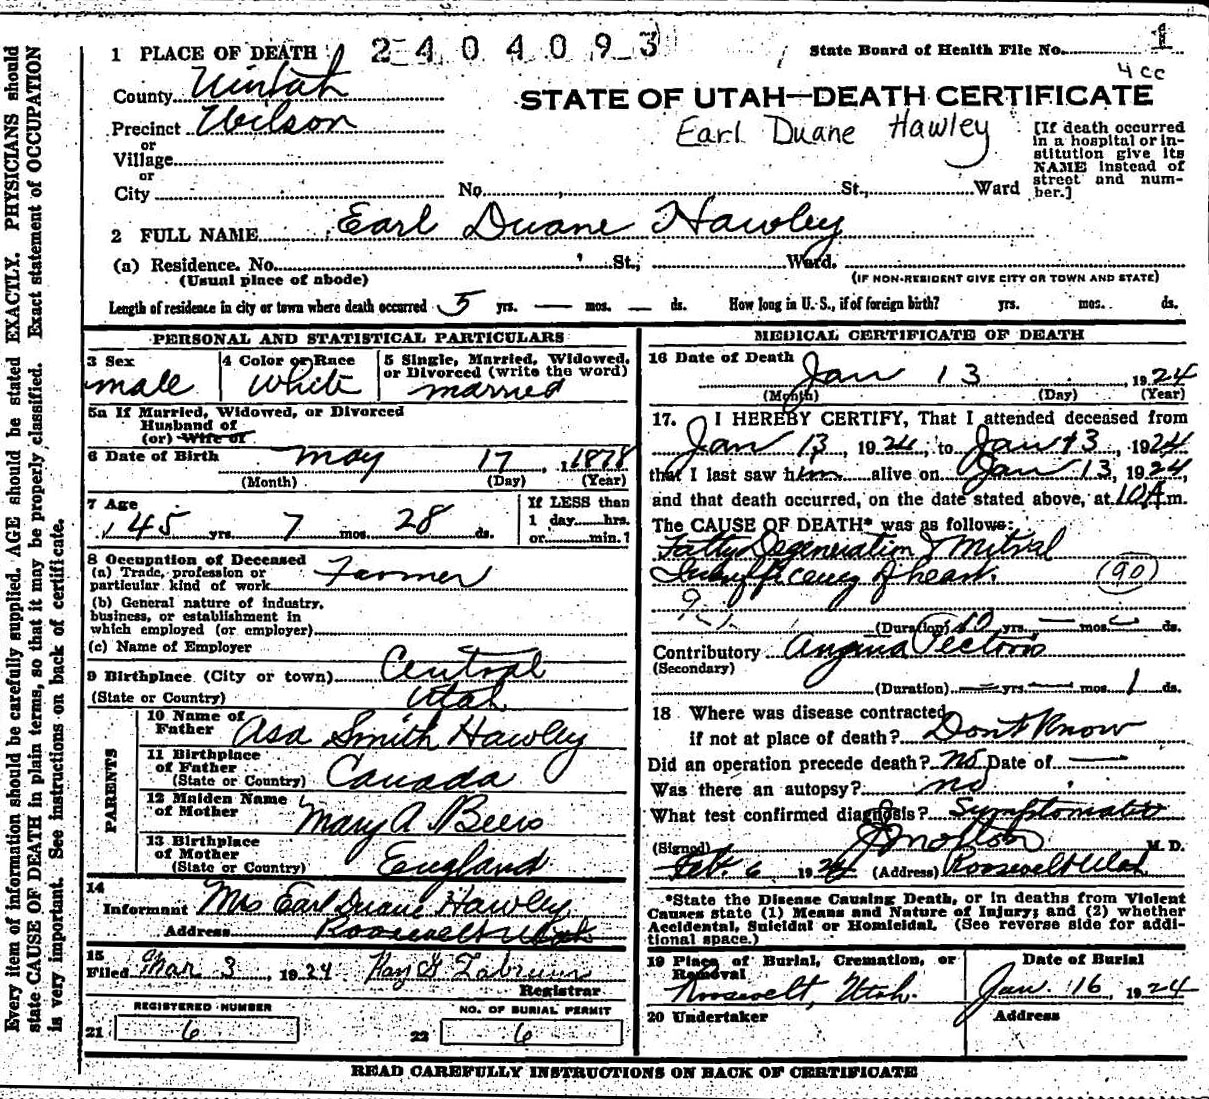 1 PLACE OF DEATH 2404093 State Board of Health File No. 1
4 cc
County Uintah
STATE OF UTAH—DEATH CERTIFICATE
Precinct Wilson
Earl Duane Hawley
[If death occurred in a hospital or institution give its NAME instead of street and number.]
or
Village
or
City No. St., Ward
2 FULL NAME Earl Duane Hawley
(a) Residence. No. St., Ward.
(Usual place of abode) (IF NON-RESIDENT GIVE CITY OR TOWN AND STATE)
Length of residence in city or town where death occurred 5 yrs. — mos. — ds. How long in U. S., if of foreign birth? yrs. mos. ds.
PERSONAL AND STATISTICAL PARTICULARS
3 Sex
male
4 Color or Race
White
5 Single, Married, Widowed, or Divorced (write the word)
married
5a If Married, Widowed, or Divorced
Husband of
(or) Wife of
6 Date of Birth may 17, 1878
(Month) (Day) (Year)
7 Age
45 yrs. 7 mos. 28 ds.
If LESS than
1 day hrs.
or min.?
8 Occupation of Deceased
(a) Trade, profession or
particular kind of work Farmer
(b) General nature of industry,
business, or establishment in
which employed (or employer)
(c) Name of Employer
9 Birthplace (City or town) Central
(State or Country) Utah
PARENTS
10 Name of
Father Asa Smith Hawley
11 Birthplace
of Father
(State or Country) Canada
12 Maiden Name
of Mother Mary A Beers
13 Birthplace
of Mother
(State or Country) England
14
Informant Mrs Earl Duane Hawley
Address Roosevelt Utah
15
Filed Mar 3, 1924
Registrar
REGISTERED NUMBER
21 6
NO. OF BURIAL PERMIT
22 6
MEDICAL CERTIFICATE OF DEATH
16 Date of Death Jan 13 1924
(Month) (Day) (Year)
17. I HEREBY CERTIFY, That I attended deceased from
Jan 13, 1924, to Jan 13, 1924
that I last saw him alive on Jan 13, 1924,
and that death occurred, on the date stated above, at 10 A m.
The CAUSE OF DEATH* was as follows:
Fatty Degeneration & Mitral
Insufficency of heart. (90)
(Duration) 10 yrs. — mos. — ds.
Contributory Angina Pectoris
(Secondary)
(Duration) — yrs. — mos. 1 ds.
18 Where was disease contracted
if not at place of death? Dont Know
Did an operation precede death? no Date of —
Was there an autopsy? no
What test confirmed diagnosis? Symptomatic
(Signed) M. D.
Feb. 6 1924 (Address) Roosevelt Utah
*State the Disease Causing Death, or in deaths from Violent
Causes state (1) Means and Nature of Injury; and (2) whether
Accidental, Suicidal or Homicidal. (See reverse side for addi-
tional space.)
19 Place of Burial, Cremation, or
Removal
Roosevelt, Utah.
Date of Burial
Jan. 16, 1924
20 Undertaker Address
READ CAREFULLY INSTRUCTIONS ON BACK OF CERTIFICATE
Every item of information should be carefully supplied. AGE should be stated EXACTLY. PHYSICIANS should
state CAUSE OF DEATH in plain terms, so that it may be properly classified. Exact statement of OCCUPATION
is very important. See instructions on back of certificate.